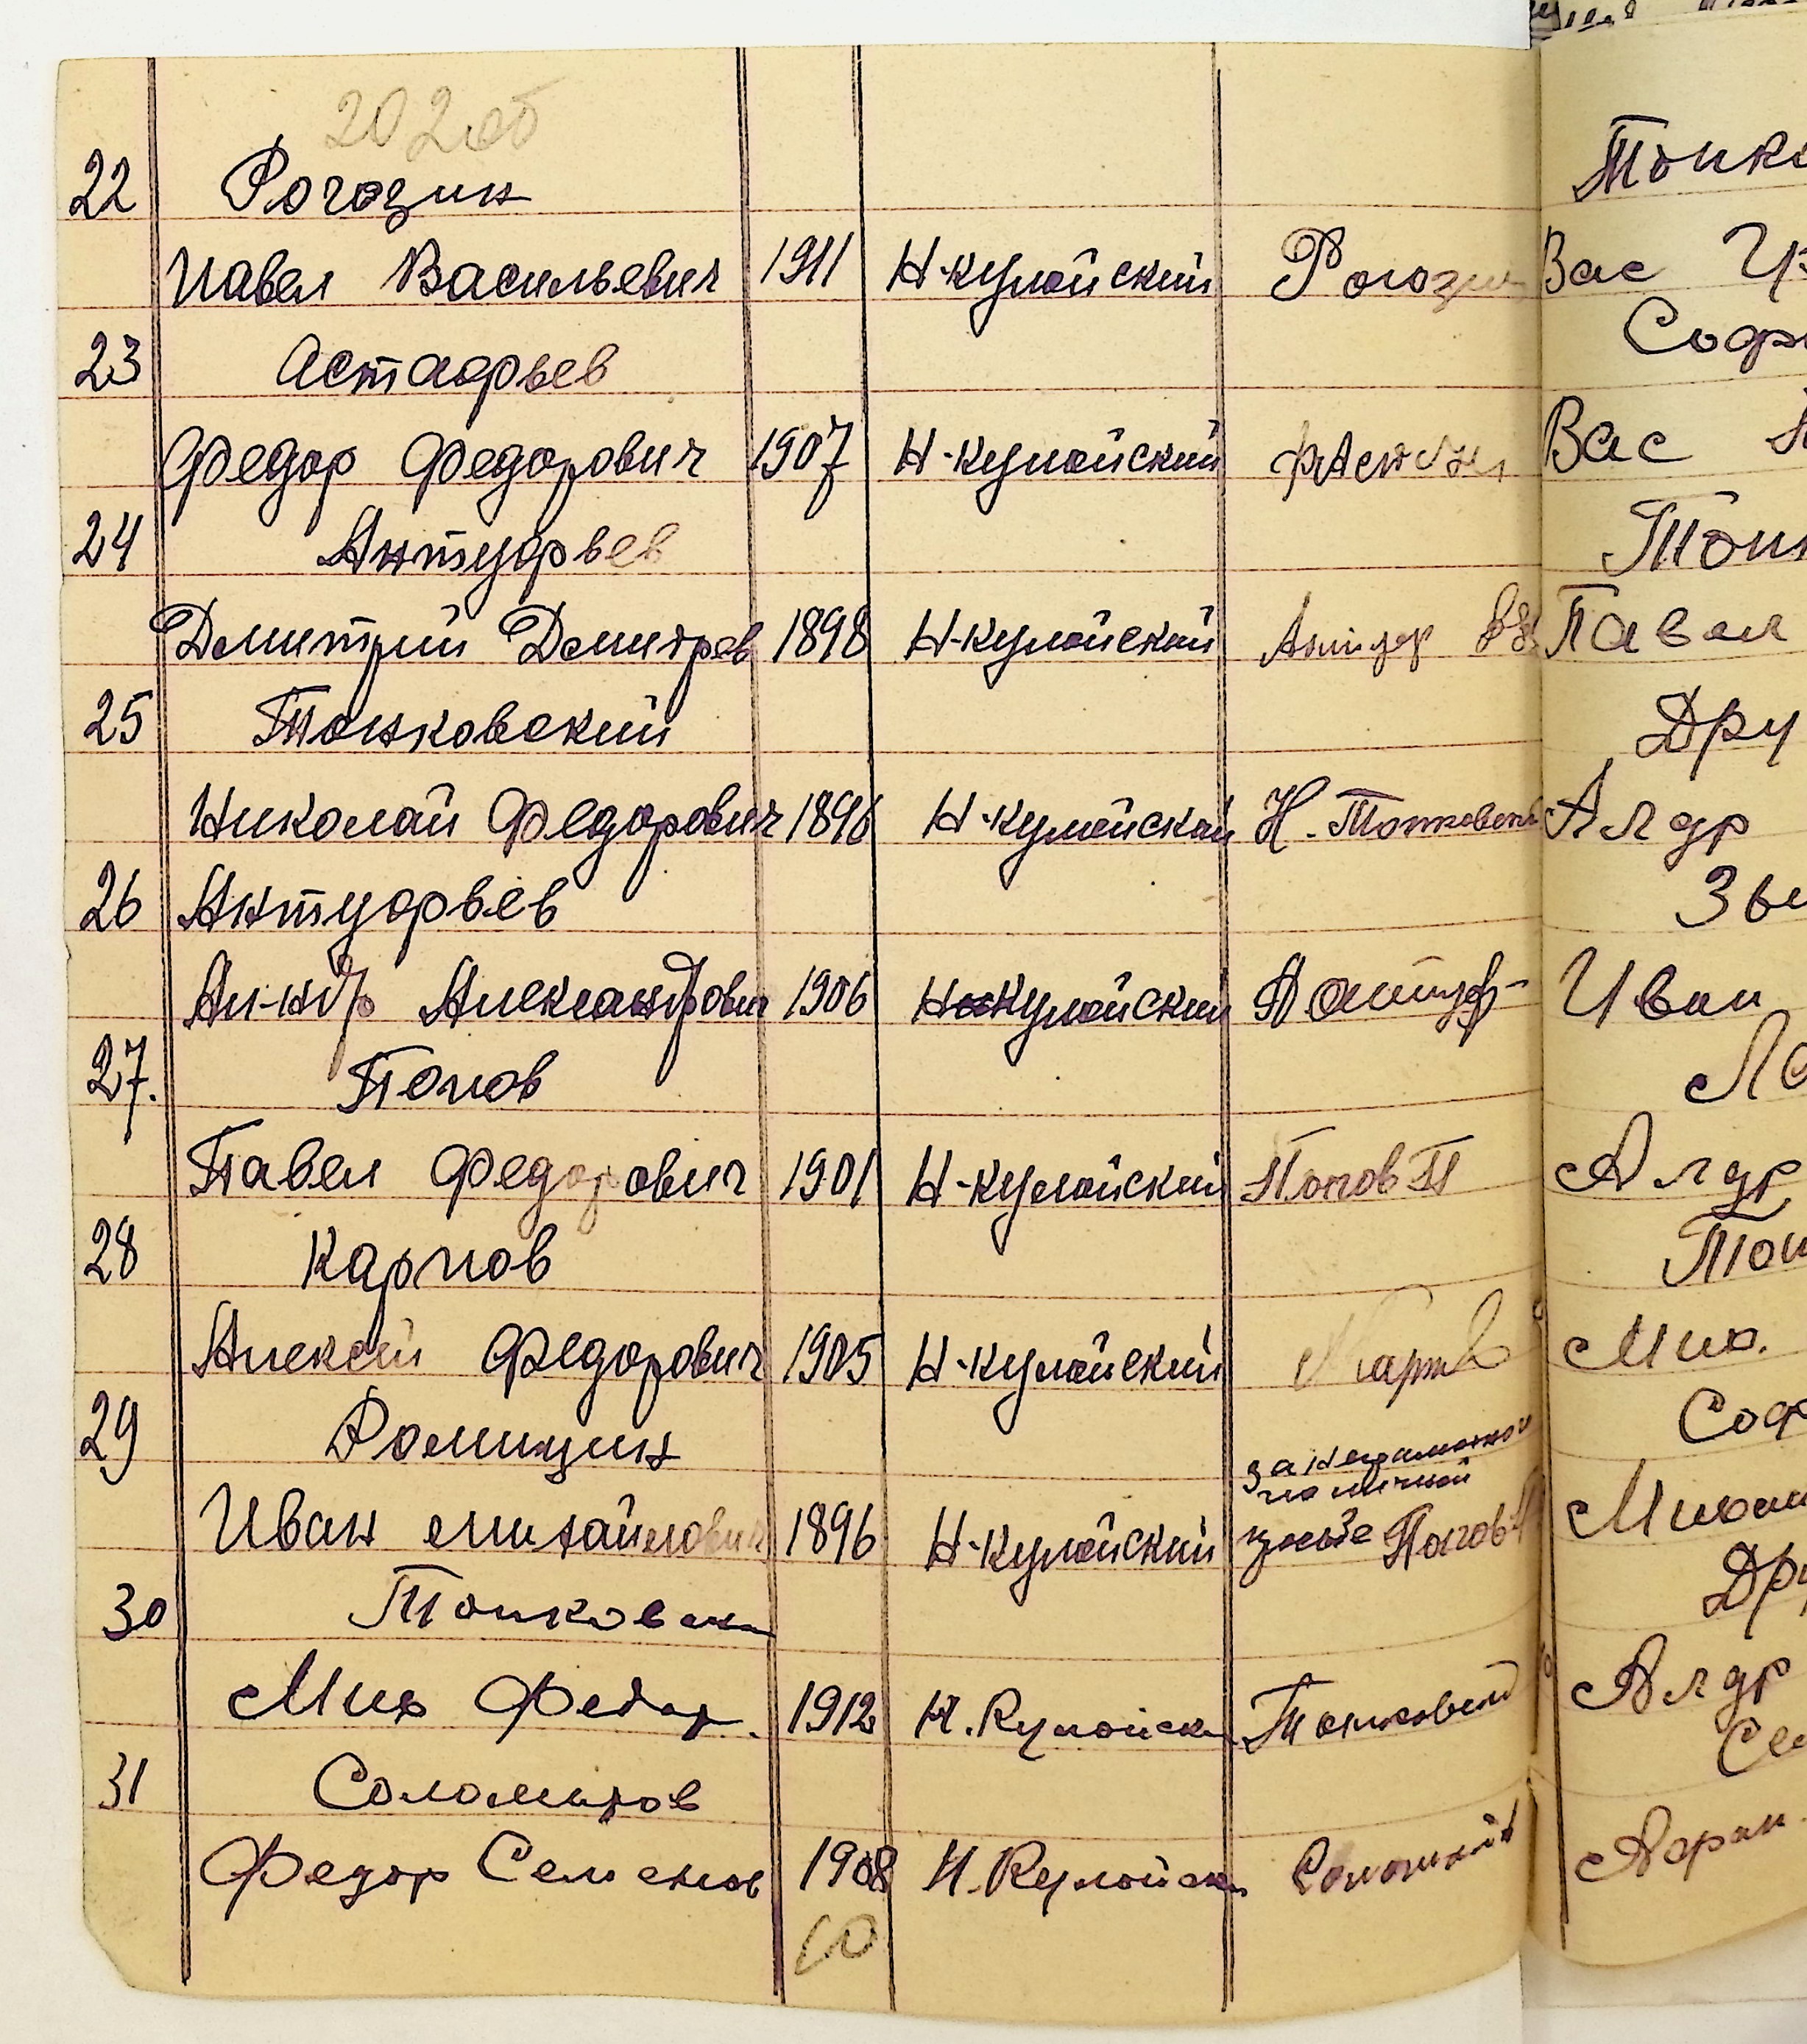 202об
22 Рогозин
Павел Васильевич 1911 Н-кулойский Рогозин
23 Астафьев
Федор Федорович 1907 Н-кулойский
24 Антуфьев
Дмитрий Дмитрев 1898 Н-кулойский Антуф
25 Тонковский
Николай Федорович 1896 Н-кулойский Н. Тонковский
26 Антуфьев
Ал-ндр Александрович 1906 Н-Кулойский
27. Попов
Павел Федорович 1901 Н-кулойский Попов П
28 Карпов
Алексей Федорович 1905 Н-кулойский Карпов
29 Ромицин
за неграмотного
по личной
Иван михайлович 1896 Н-Кулойский просьбе Попов
30 Тонковск
Мих Федор. 1912 Н. Кулойск Тонковский
31 Соломатов
Федор Семенов 1908 Н. Кулойск
10
Тонко
Вас
Соф
Вас
Тонк
Павел
Дру
Алдр
Зы
Иван
Ло
Алдр
Тон
Мих.
Соф
Михаи
Дру
Алдр
Се
Афан